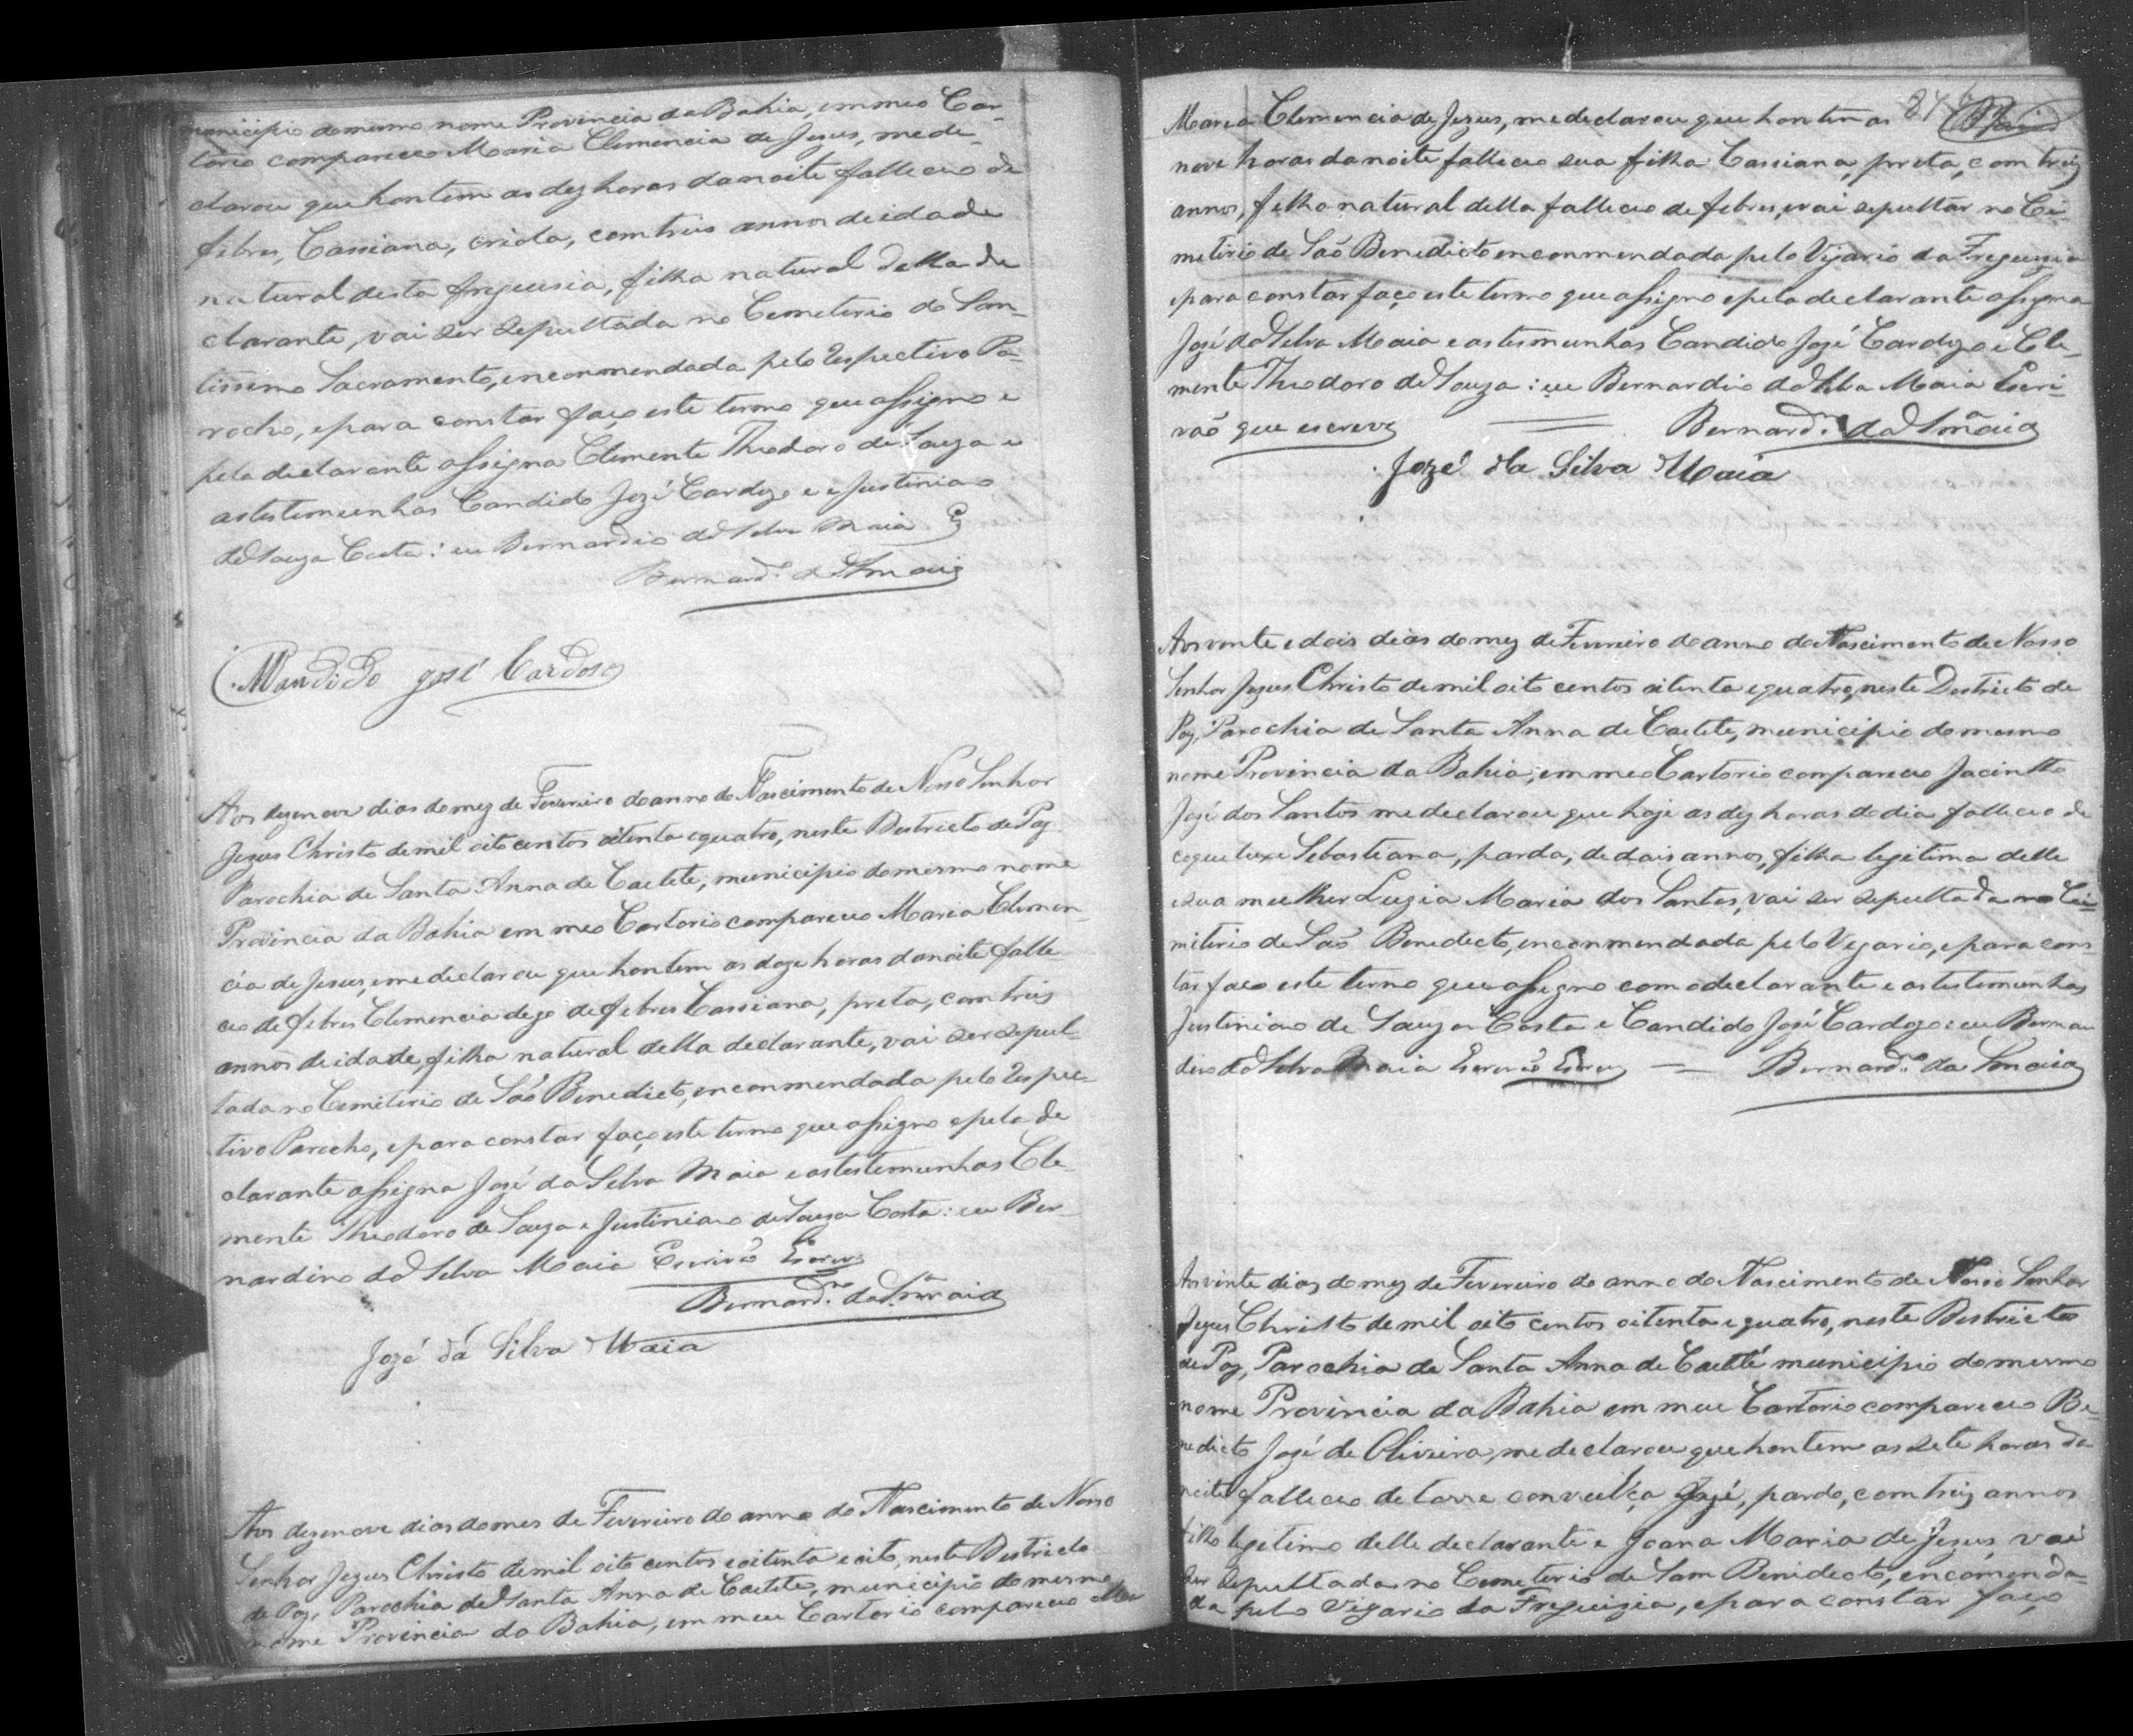 municipio do mesmo nome Provincia da Bahia, em meo Car-
torio compareceo Maria Clemencia de Jesus, me de-
clarou que hontem as dez horas da noite falleceo de
febres, Cassiana, criola, com treis annos de idade
natural desta freguesia, filha natural della de
clarante, vai ser sepultada no Cemeterio do San-
tissimo Sacramento, encommendada pelo respectivo Pa-
rocho, e para constar faço este termo que assigno e
pela declarante assigna Clemente Theodoro de Souza e
as testemunhas Candido José Cardozo e Justiniano
de Souza Costa: eu Bernardino da Silva Maia
Bernard.º da S.ª Maia
Candido José Cardoso
Aos dezenove dias do mez de Fevereiro do anno do Nascimento de Nosso Senhor
Jezus Christo de mil oito centos oitenta e quatro, neste Destricto de Paz
Parochia de Santa Anna de Caetete, municipio do mesmo nome
Provincia da Bahia em meo Cartorio compareceo Maria Clemen-
cia de Jesus, e me declarou que hontem as doze horas da noite falle-
ceo de febres Clemencia digo de febres Cassiana, preta, com treis
annos de idade, filha natural della declarante, vai ser sepul-
tada no Cemiterio de São Benedicto, encommendada pelo respec-
tivo Parocho, e para constar faço este termo que assigno e pela de
clarante assigna José da Silva Maia e as testemunhas Cle-
mente Theodoro de Souza e Justiniano de Souza Costa: eu Ber-
nardino da Silva Maia Escrivão Escrevi
Bernard.no da S.ª Maia
Jozé da Silva Maia
Aos dezenove dias do mes de Fevereiro do anno do Nascimento de Nosso
Senhor Jezus Christo de mil oito centos e oitenta e oito, neste Destricto
de Paz, Parochia de Santa Anna de Caetete, municipio do mesmo
nome Provincia da Bahia, em meu Cartorio compareceo
Maria Clemencia de Jezus, me declarou que hontem as
nove horas da noite falleceo sua filha Cassiana, preta, com treiz
annos, filha natural della falleceo de febres, e vai sepultar no Ce-
meterio de São Benedicto encommendada pelo Vigario da Freguezia
e para constar faço este termo que assigno e pela declarante assigna
José da Silva Maia e as testemunhas Candido José Cardozo e Cle-
mente Theodoro de Souza: eu Bernardino da Silva Maia Escri-
vão que escrevi Bernard.º da S.ª Maia
Jozé da Silva Maia
Aos vinte e dois dias do mez de Fevereiro do anno do Nascimento de Nosso
Senhor Jezus Christo de mil oito centos oitenta e quatro, neste Destricto de
Paz, Parochia de Santa Anna de Caetete, municipio do mesmo
nome Provincia da Bahia, em meo Cartorio compareceo Jacintho
José dos Santos me declarou que hoje as dez horas do dia falleceo de
coqueluxe Sebastiana, parda, de dois annos, filha legitima delle
e sua mulher Luzia Maria dos Santos, vai ser sepultada no Ce-
miterio de São Benedicto, encommendada pelo Vigario, e para cons-
tar faço este termo que assigno com o declarante e as testemunhas
Justiniano de Souza Costa e Candido José Cardozo: eu Bernar
dino da Silva Maia Escrivão Escrevi Bernard.º da S.ª Maia
Aos vinte dias do mez de Fevereiro do anno do Nascimento de Nosso Senhor
Jezus Christo de mil oito centos oitenta e quatro, neste Destricto
de Paz, Parochia de Santa Anna de Caetité municipio do mesmo
nome Provincia da Bahia em meu Cartorio compareceo Be-
nedicto José de Oliveira, me declarou que hontem as sete horas da
noite falleceo de tosse convulça José, pardo, com treiz annos
filho legitimo delle declarante e Joana Maria de Jezus, vai
ser sepultada no Cemeterio de Sam Benedecto, encomenda-
da pelo Vigario da Freguizia, e para constar faço